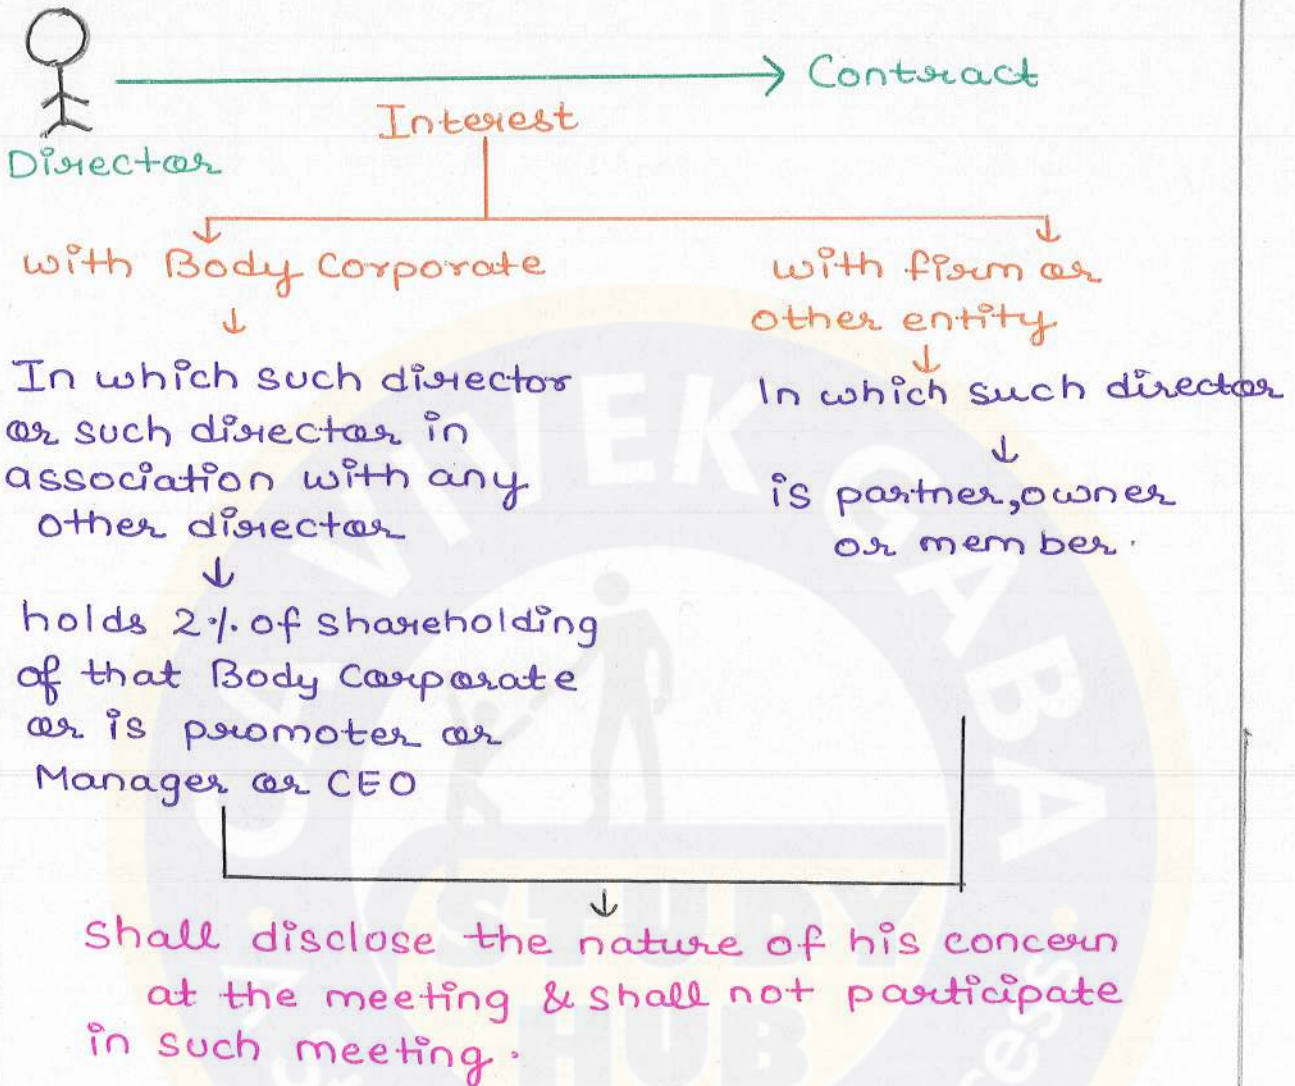 Contract
Interest
Director
with Body Corporate
In which such director
or such director in
association with any
other director
holds 2% of shareholding
of that Body Corporate
or is promoter or
Manager or CEO
with firm or
other entity
In which such director
is partner, owner
or member.
Shall disclose the nature of his concern
at the meeting & shall not participate
in such meeting.
CA VIVEK GABA
STUDY
HUB